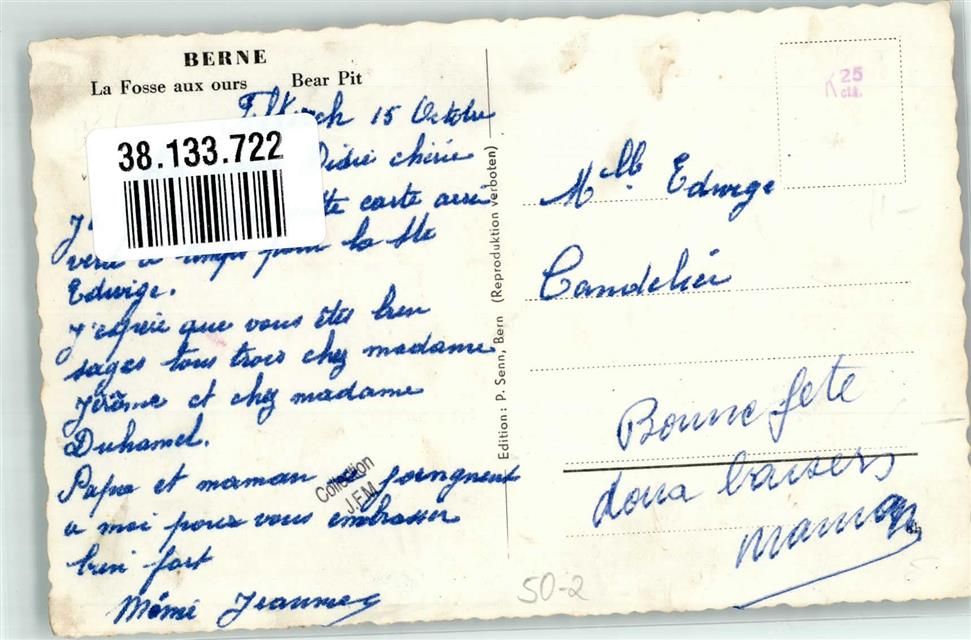 BERNE
La Fosse aux ours Bear Pit
15 Octobre
38.133.722
chérie
carte arri
vera à temps pour la Ste
Edwige.
J'espère que vous êtes bien
sages tous trois chez madame
Jérôme et chez madame
Duhamel.
Papa et maman se joingnent
a moi pour vous embrasser
bien fort
Mémé Jeanne
Collection
J.F.M.
Edition: P. Senn, Bern (Reproduktion verboten)
K 25
cts.
Mlle Edwige
Candelier
Bonne fete
doux baisers
maman
50-2